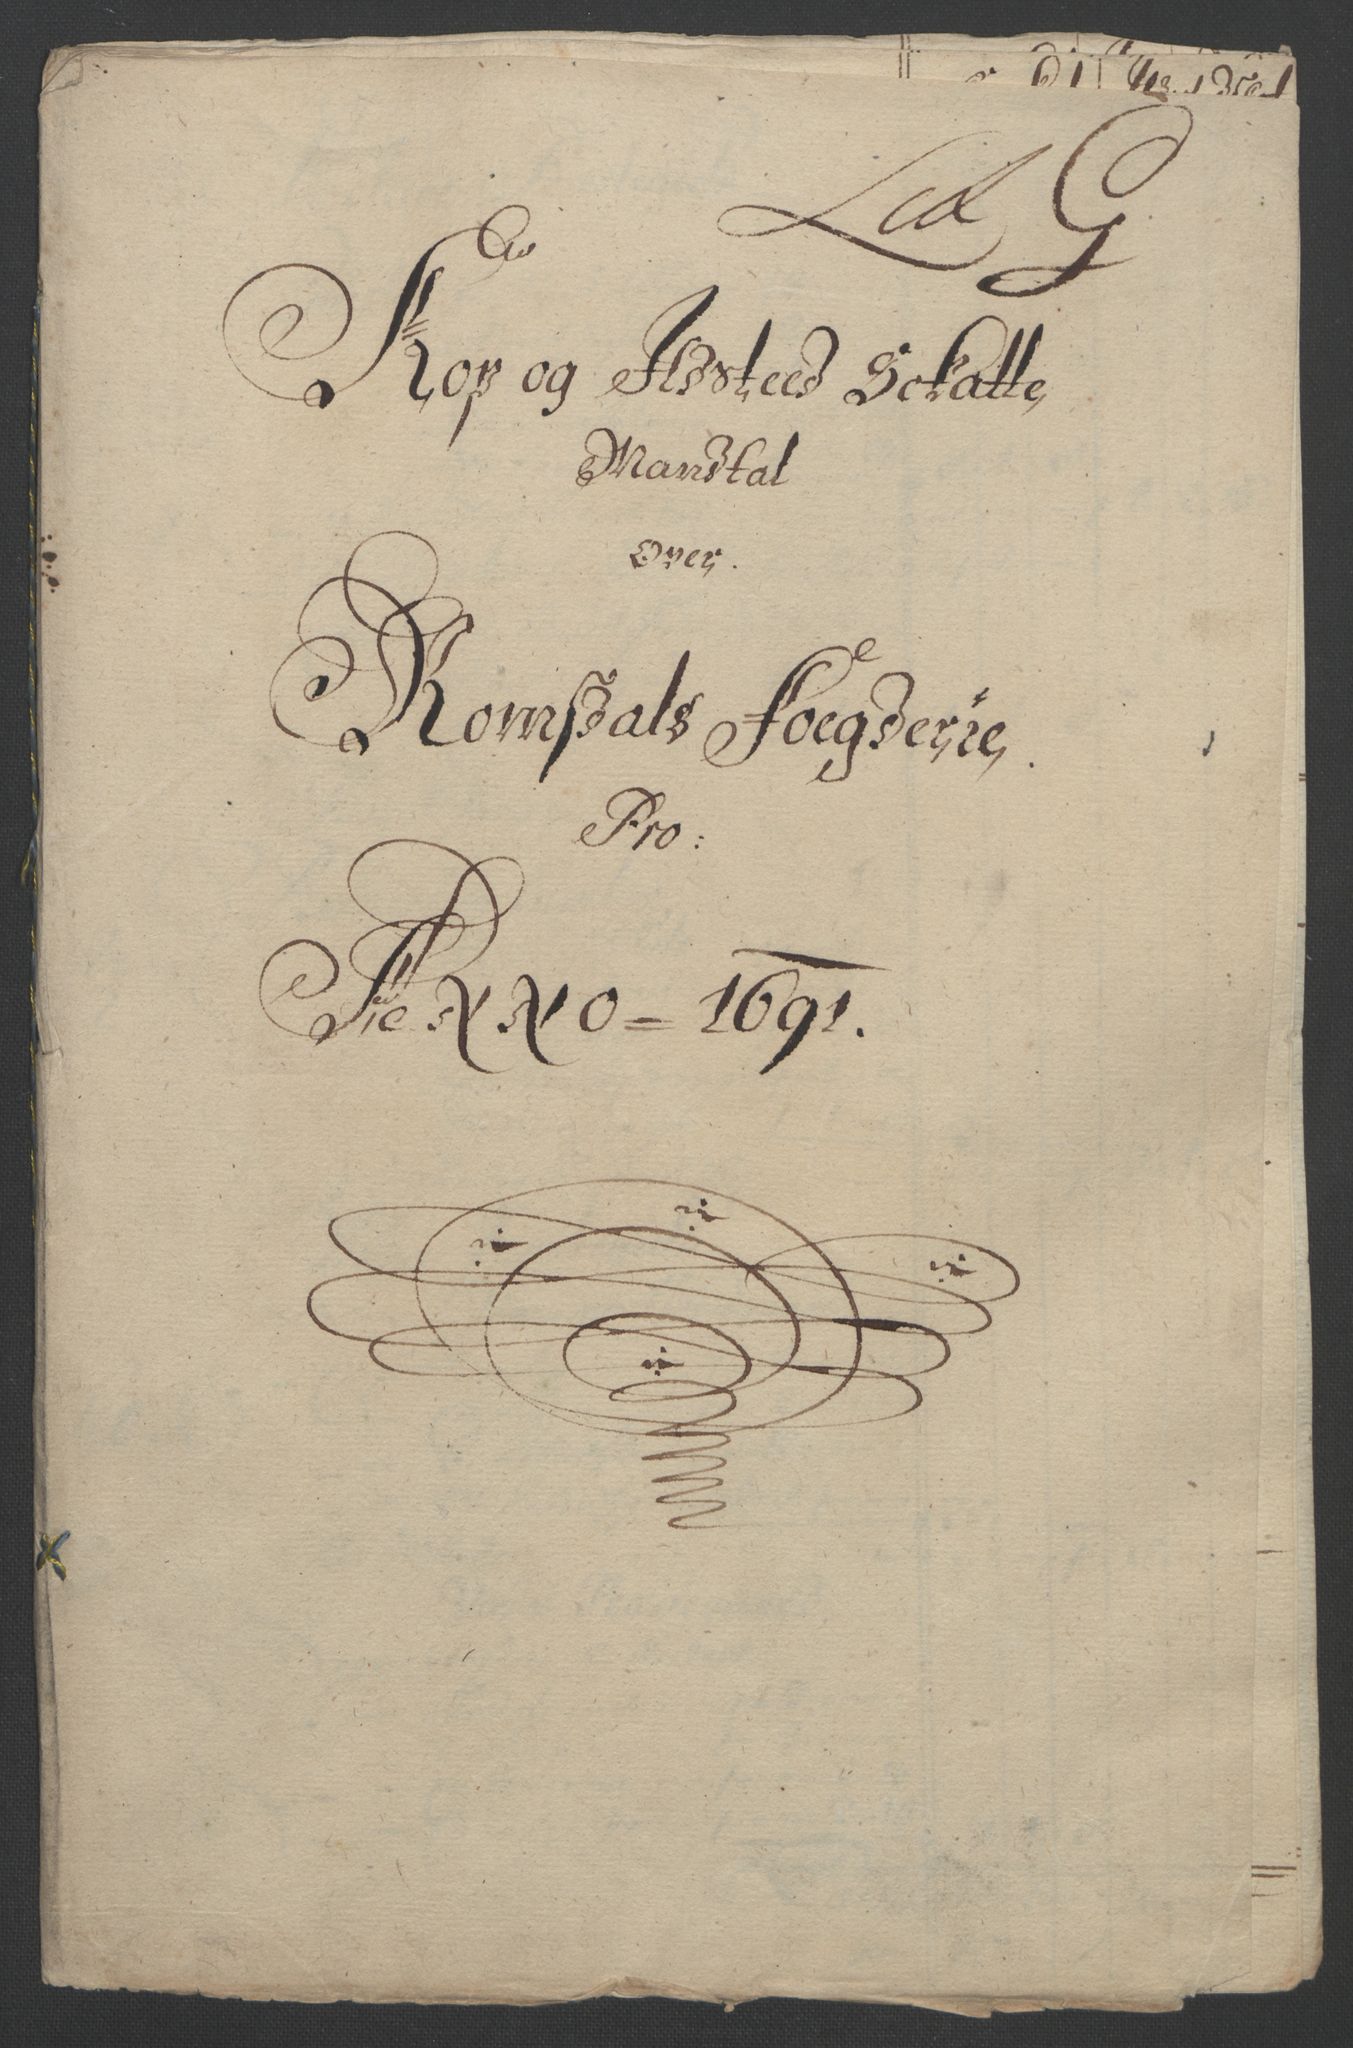 Lit G
Kop og Ildsteed Schatte
Mandtal
Over.
Romsdals Foegderie.
Pro:
Anno = 1691.